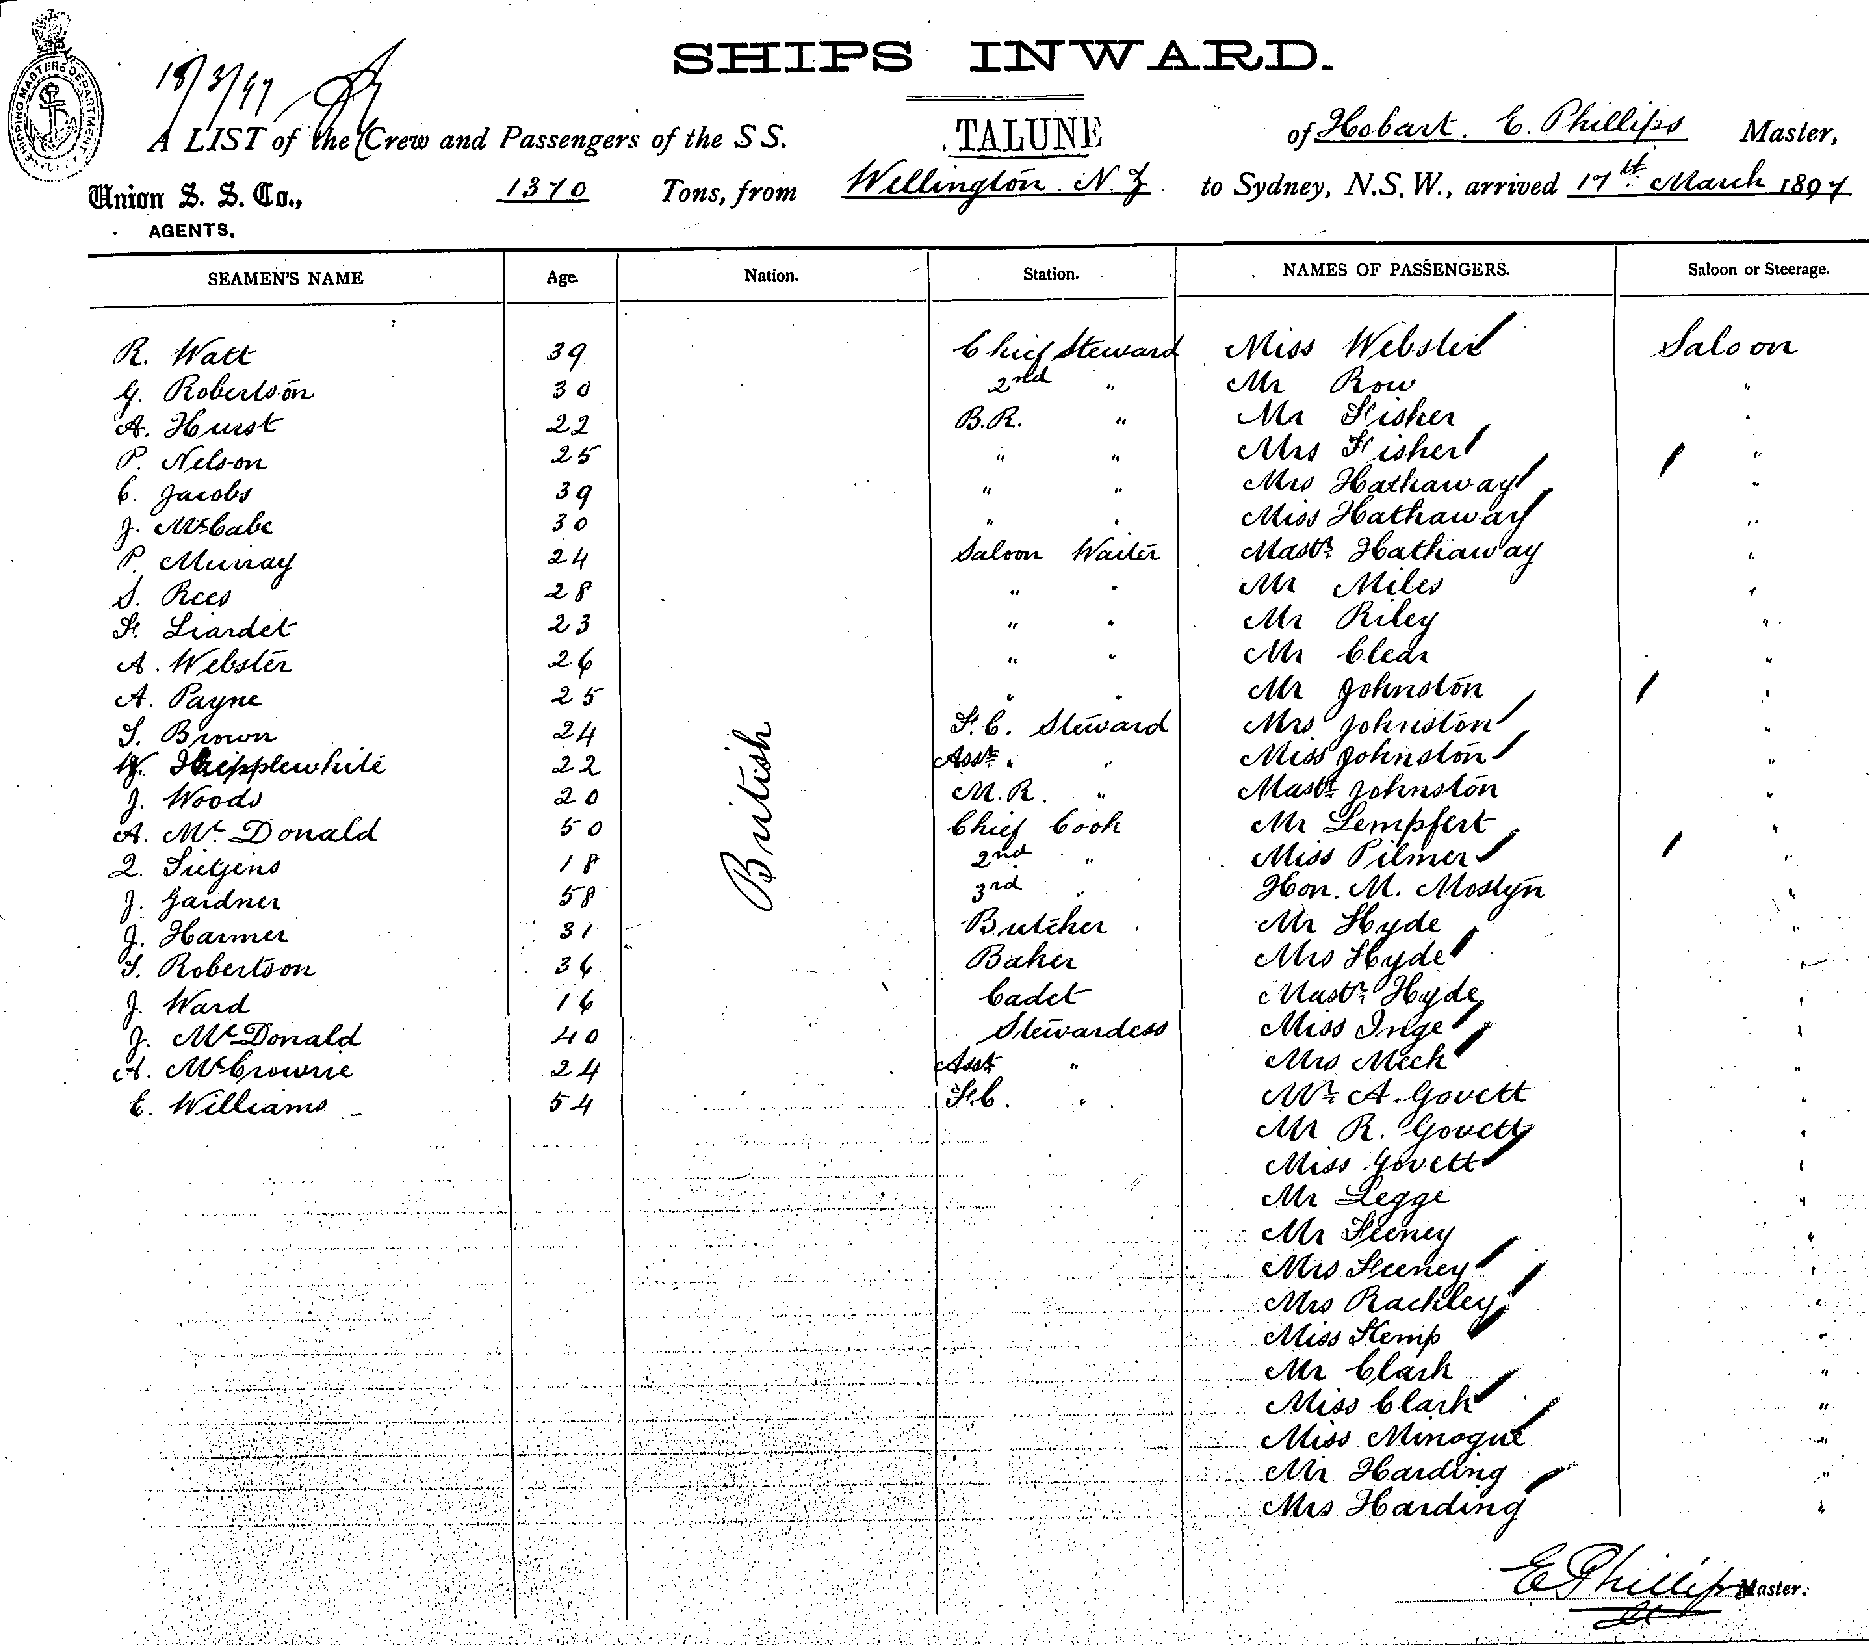 SHIPS INWARD.
18/3/97
A LIST of the Crew and Passengers of the S S. TALUNE of Hobart. E. Phillips Master,
Union S. S. Co., 1370 Tons, from Wellington. N. Z. to Sydney, N.S.W., arrived 17th March 1897
AGENTS.
SEAMEN'S NAME Age. Nation. Station. NAMES OF PASSENGERS. Saloon or Steerage.
R. Watt 39 Chief Steward Miss Webster Saloon
G. Robertson 30 2nd " Mr Row "
A. Hurst 22 B.R. " Mr Fisher "
P. Nelson 25 " " Mrs Fisher "
C. Jacobs 39 " " Mrs Hathaway "
J. McCabe 30 " " Miss Hathaway "
P. Murray 24 Saloon Waiter Mastr Hathaway "
S. Rees 28 " " Mr Miles "
F. Liardet 23 " " Mr Riley "
A. Webster 26 " " Mr Clear "
A. Payne 25 " " Mr Johnston "
S. Brown 24 F.C. Steward Mrs Johnston "
Thipplewhite 22 Asst " " Miss Johnston "
J. Woods 20 M.R. " Mastr Johnston "
A. McDonald 50 Chief Cook Mr Lempfert "
18 2nd " Miss Pilmer "
J. Gardner 58 3rd " Hon. M. Mostyn "
J. Harmer 31 Butcher Mr Hyde "
S. Robertson 36 Baker Mrs Hyde "
J. Ward 16 Cadet Mastr Hyde "
J. McDonald 40 Stewardess Miss Inge "
A. McCrownie 24 Asst " Mrs Meek "
E. Williams 54 F.C. " Mr A. Govett "
British
Mr R. Govett "
Miss Govett "
Mr Legge "
Mr Feeney "
Mrs Feeney "
Mrs Rackley "
Miss Kemp "
Mr Clark "
Miss Clark "
Miss Minogue "
Mr Harding "
Mrs Harding "
E Phillips Master.